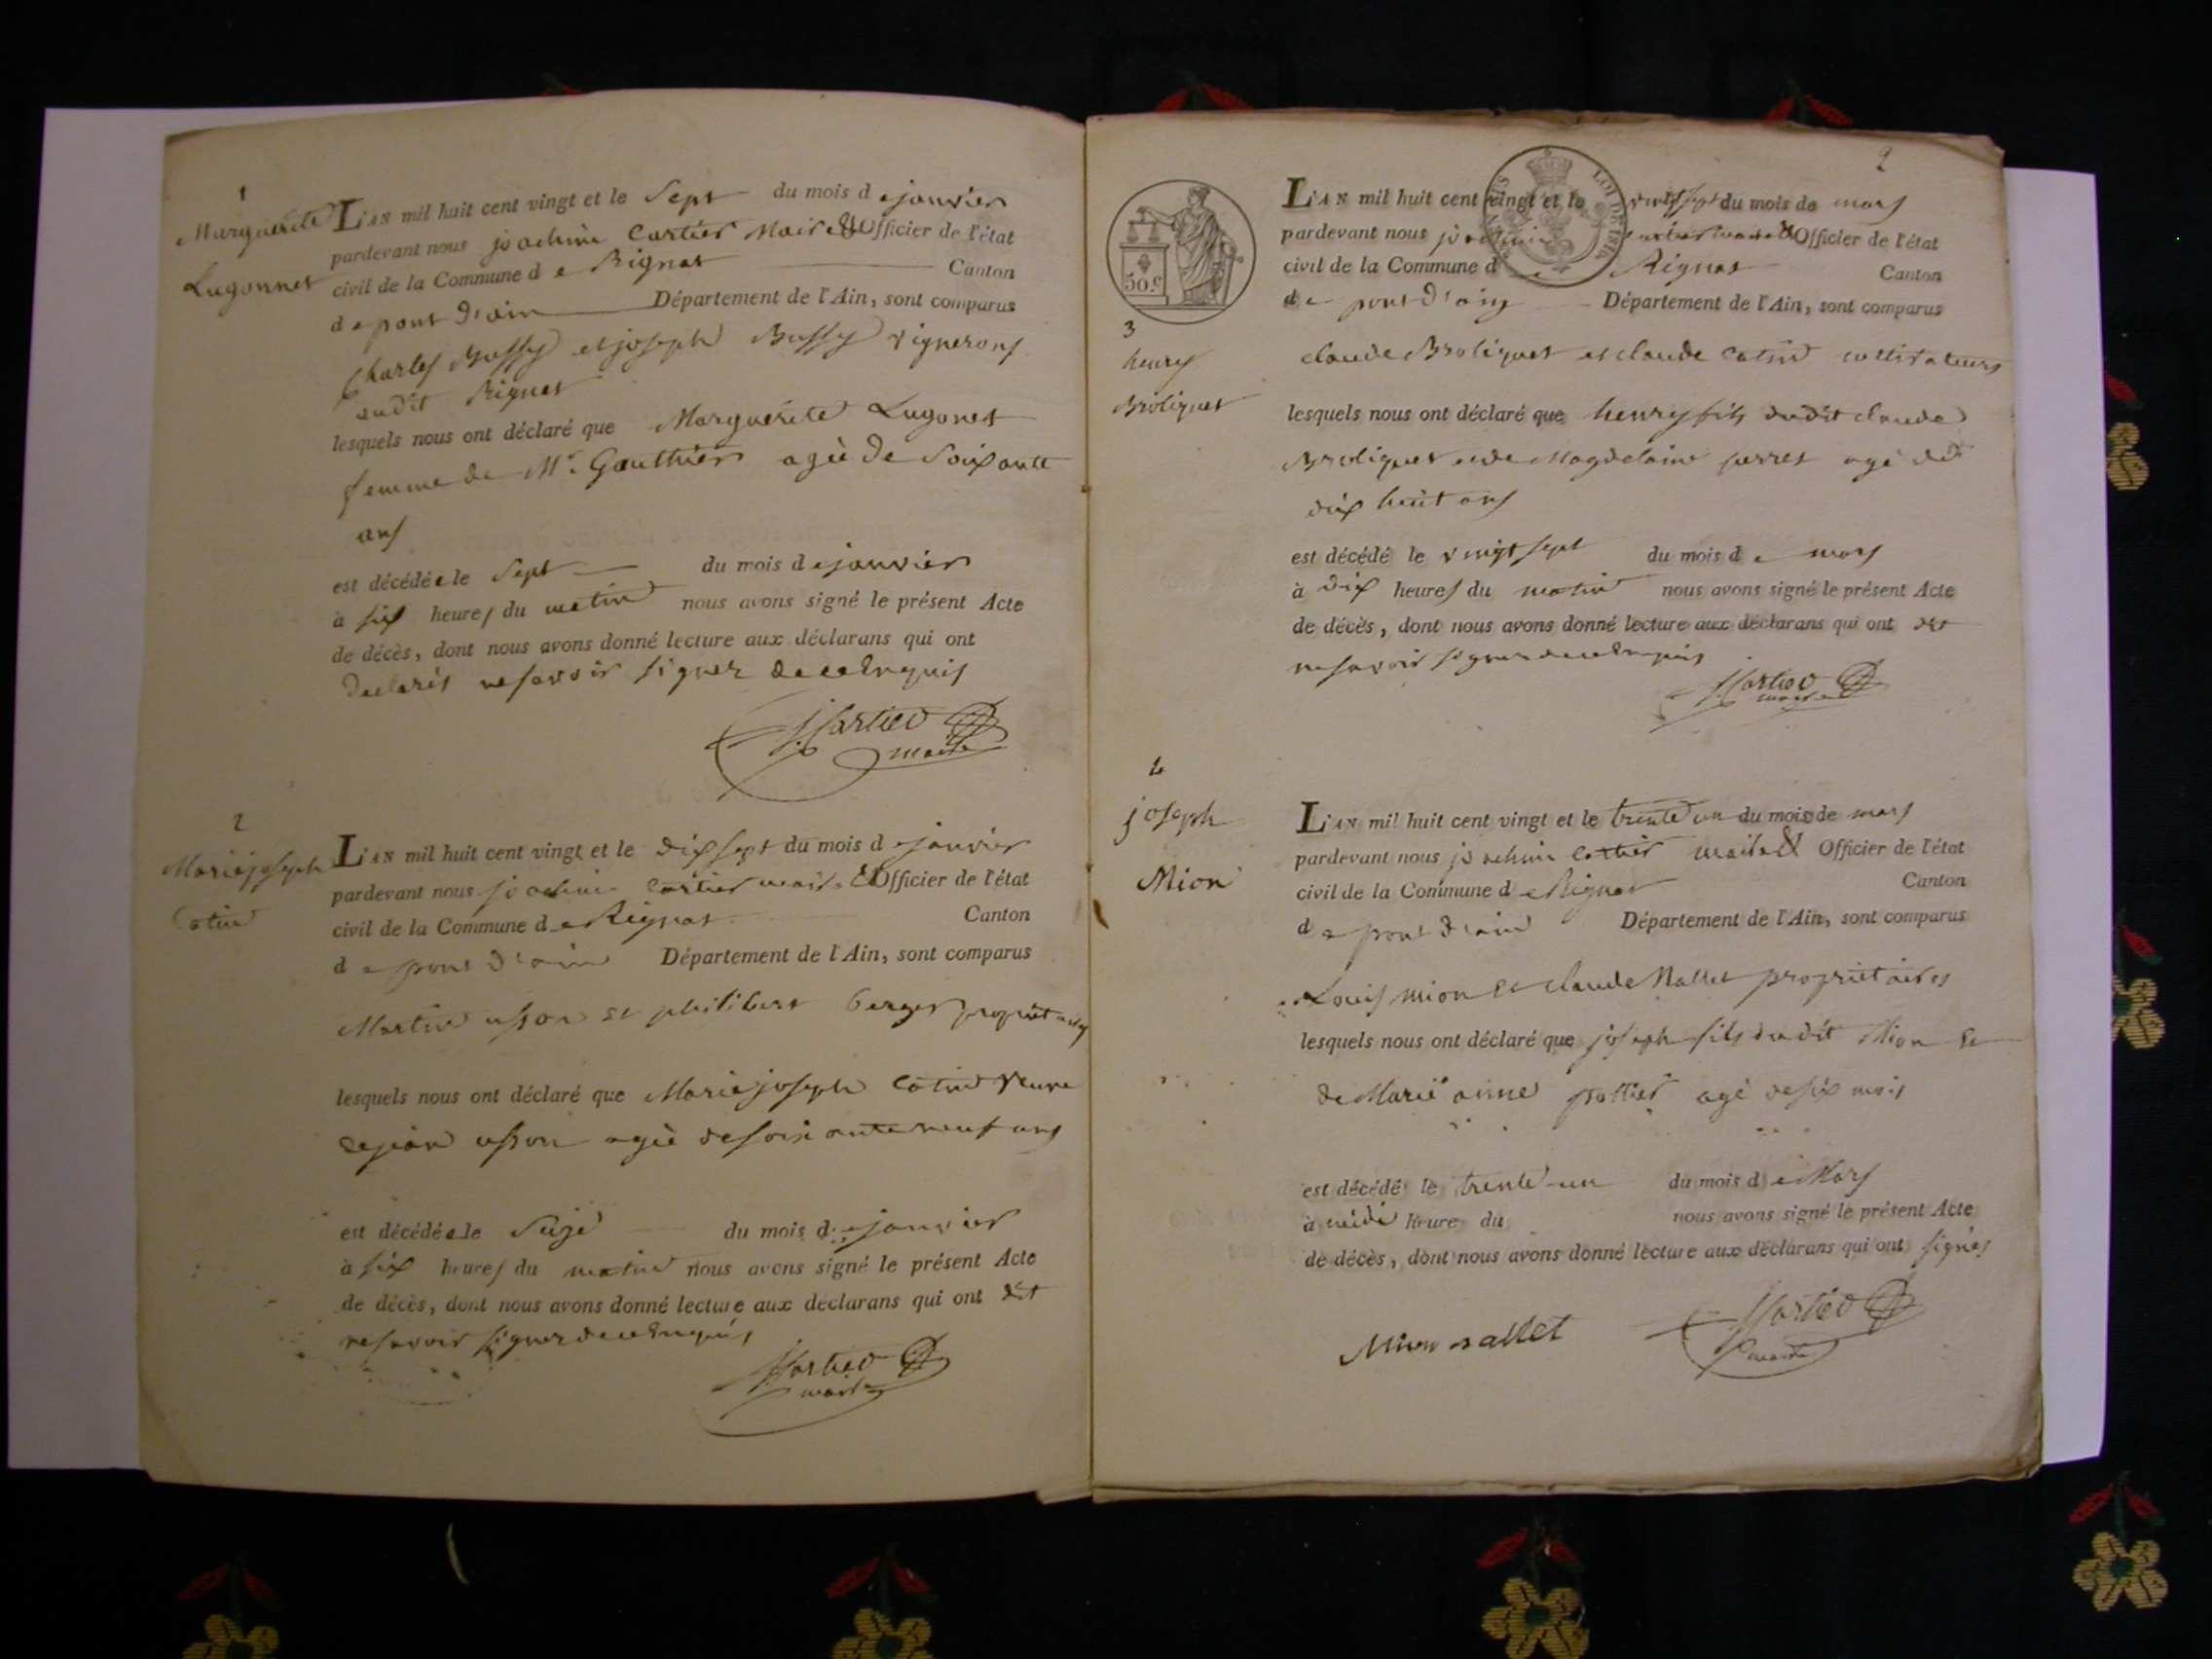 1
Marguerite
Lugonnet
L'AN mil huit cent vingt et le Sept du mois de janvier
pardevant nous joachim Cartier Maire & Officier de l'état
civil de la Commune de Rignat Canton
de pont d'ain Département de l'Ain, sont comparus
Charles Bussy et joseph Bussy vignerons
audit Rignat
lesquels nous ont déclaré que Marguerite Lugonet
femme de Mr. Gauthier agèe de Soixante
ans
est décédée le Sept du mois de janvier
à six heures du matin nous avons signé le présent Acte
de décès, dont nous avons donné lecture aux déclarans qui ont
declarés ne savoir signer de ce Enquis
J. Cartier
maire
2
Marie joseph
Cotin
L'AN mil huit cent vingt et le dix sept du mois de janvier
pardevant nous joachim Cartier maire & Officier de l'état
civil de la Commune de Rignat Canton
de pont d'ain Département de l'Ain, sont comparus
Martin usson et philibert berger propriétaires
lesquels nous ont déclaré que Marie joseph Cotin veuve
de jean usson agèe de soixante neuf ans
est décédée le Seize du mois de janvier
à six heures du matin nous avons signé le présent Acte
de décès, dont nous avons donné lecture aux déclarans qui ont dit
ne savoir signer de ce Enquis
J. Cartier
maire
2
50.c
LOI DE 1816
3
henry
Broliquet
L'AN mil huit cent vingt et le vingt sept du mois de mars
pardevant nous joachim cartier maire & Officier de l'état
civil de la Commune de Rignat Canton
de pont d'ain Département de l'Ain, sont comparus
claude Broliquet et claude Cotin cultivateurs
lesquels nous ont déclaré que henry fils dudit claude
Broliquet et de Magdelaine perret agé de
dix huit ans
est décédé le vingt sept du mois de mars
à dix heures du matin nous avons signé le présent Acte
de décès, dont nous avons donné lecture aux déclarans qui ont dit
ne savoir signer de ce Enquis
J. Cartier
maire
4
joseph
Mion
L'AN mil huit cent vingt et le trente un du mois de mars
pardevant nous joachim Cartier maire & Officier de l'état
civil de la Commune de Rignat Canton
de pont d'ain Département de l'Ain, sont comparus
Louis Mion et claude Nallet propriétaires
lesquels nous ont déclaré que joseph fils dudit Mion et
de Marie anne agé de six mois
est décédé le trente un du mois de Mars
à midi heure du nous avons signé le présent Acte
de décès, dont nous avons donné lecture aux déclarans qui ont signés
Mion nallet
J. Cartier
maire